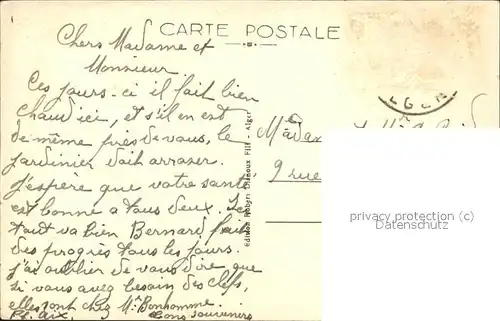 CARTE POSTALE
Chers Madame et
Monsieur
Ces jours-ci il fait bien
chaud ici, et s'il en est
de même près de vous, le
jardinier doit arroser.
J'espère que votre santé
est bonne a tous deux.
tout va bien Bernard fait
des progrès tous les jours.
J'ai oublier de vous dire que
si vous avez besoin des clefs,
elles sont chez Mr Bonhomme.
Bons souvenirs
Edition Alger
Madam
9 rue
privacy protection
Datenschutz